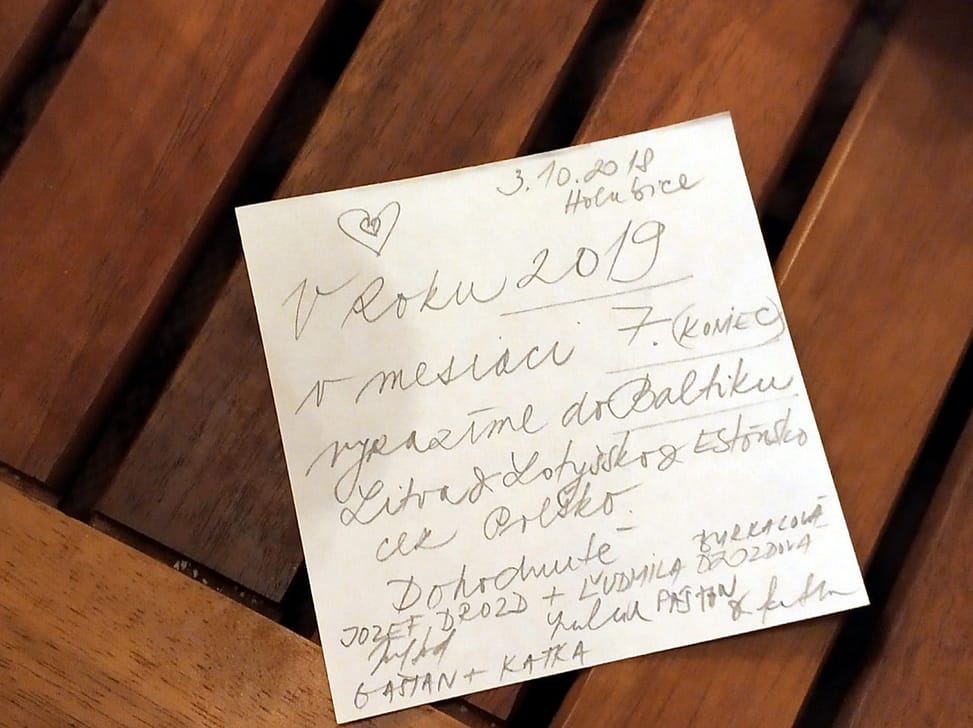 3.10.2018
Holubice
V Roku 2019
v mesiaci 7. (KONIEC)
vyrazíme do Baltiku
Litva & Lotyšsko & Estónsko
cez Polsko.
Dohodnuté
JOZEF DROZD + ĽUDMILA DROZDOVÁ
GAŠTAN + KATKA